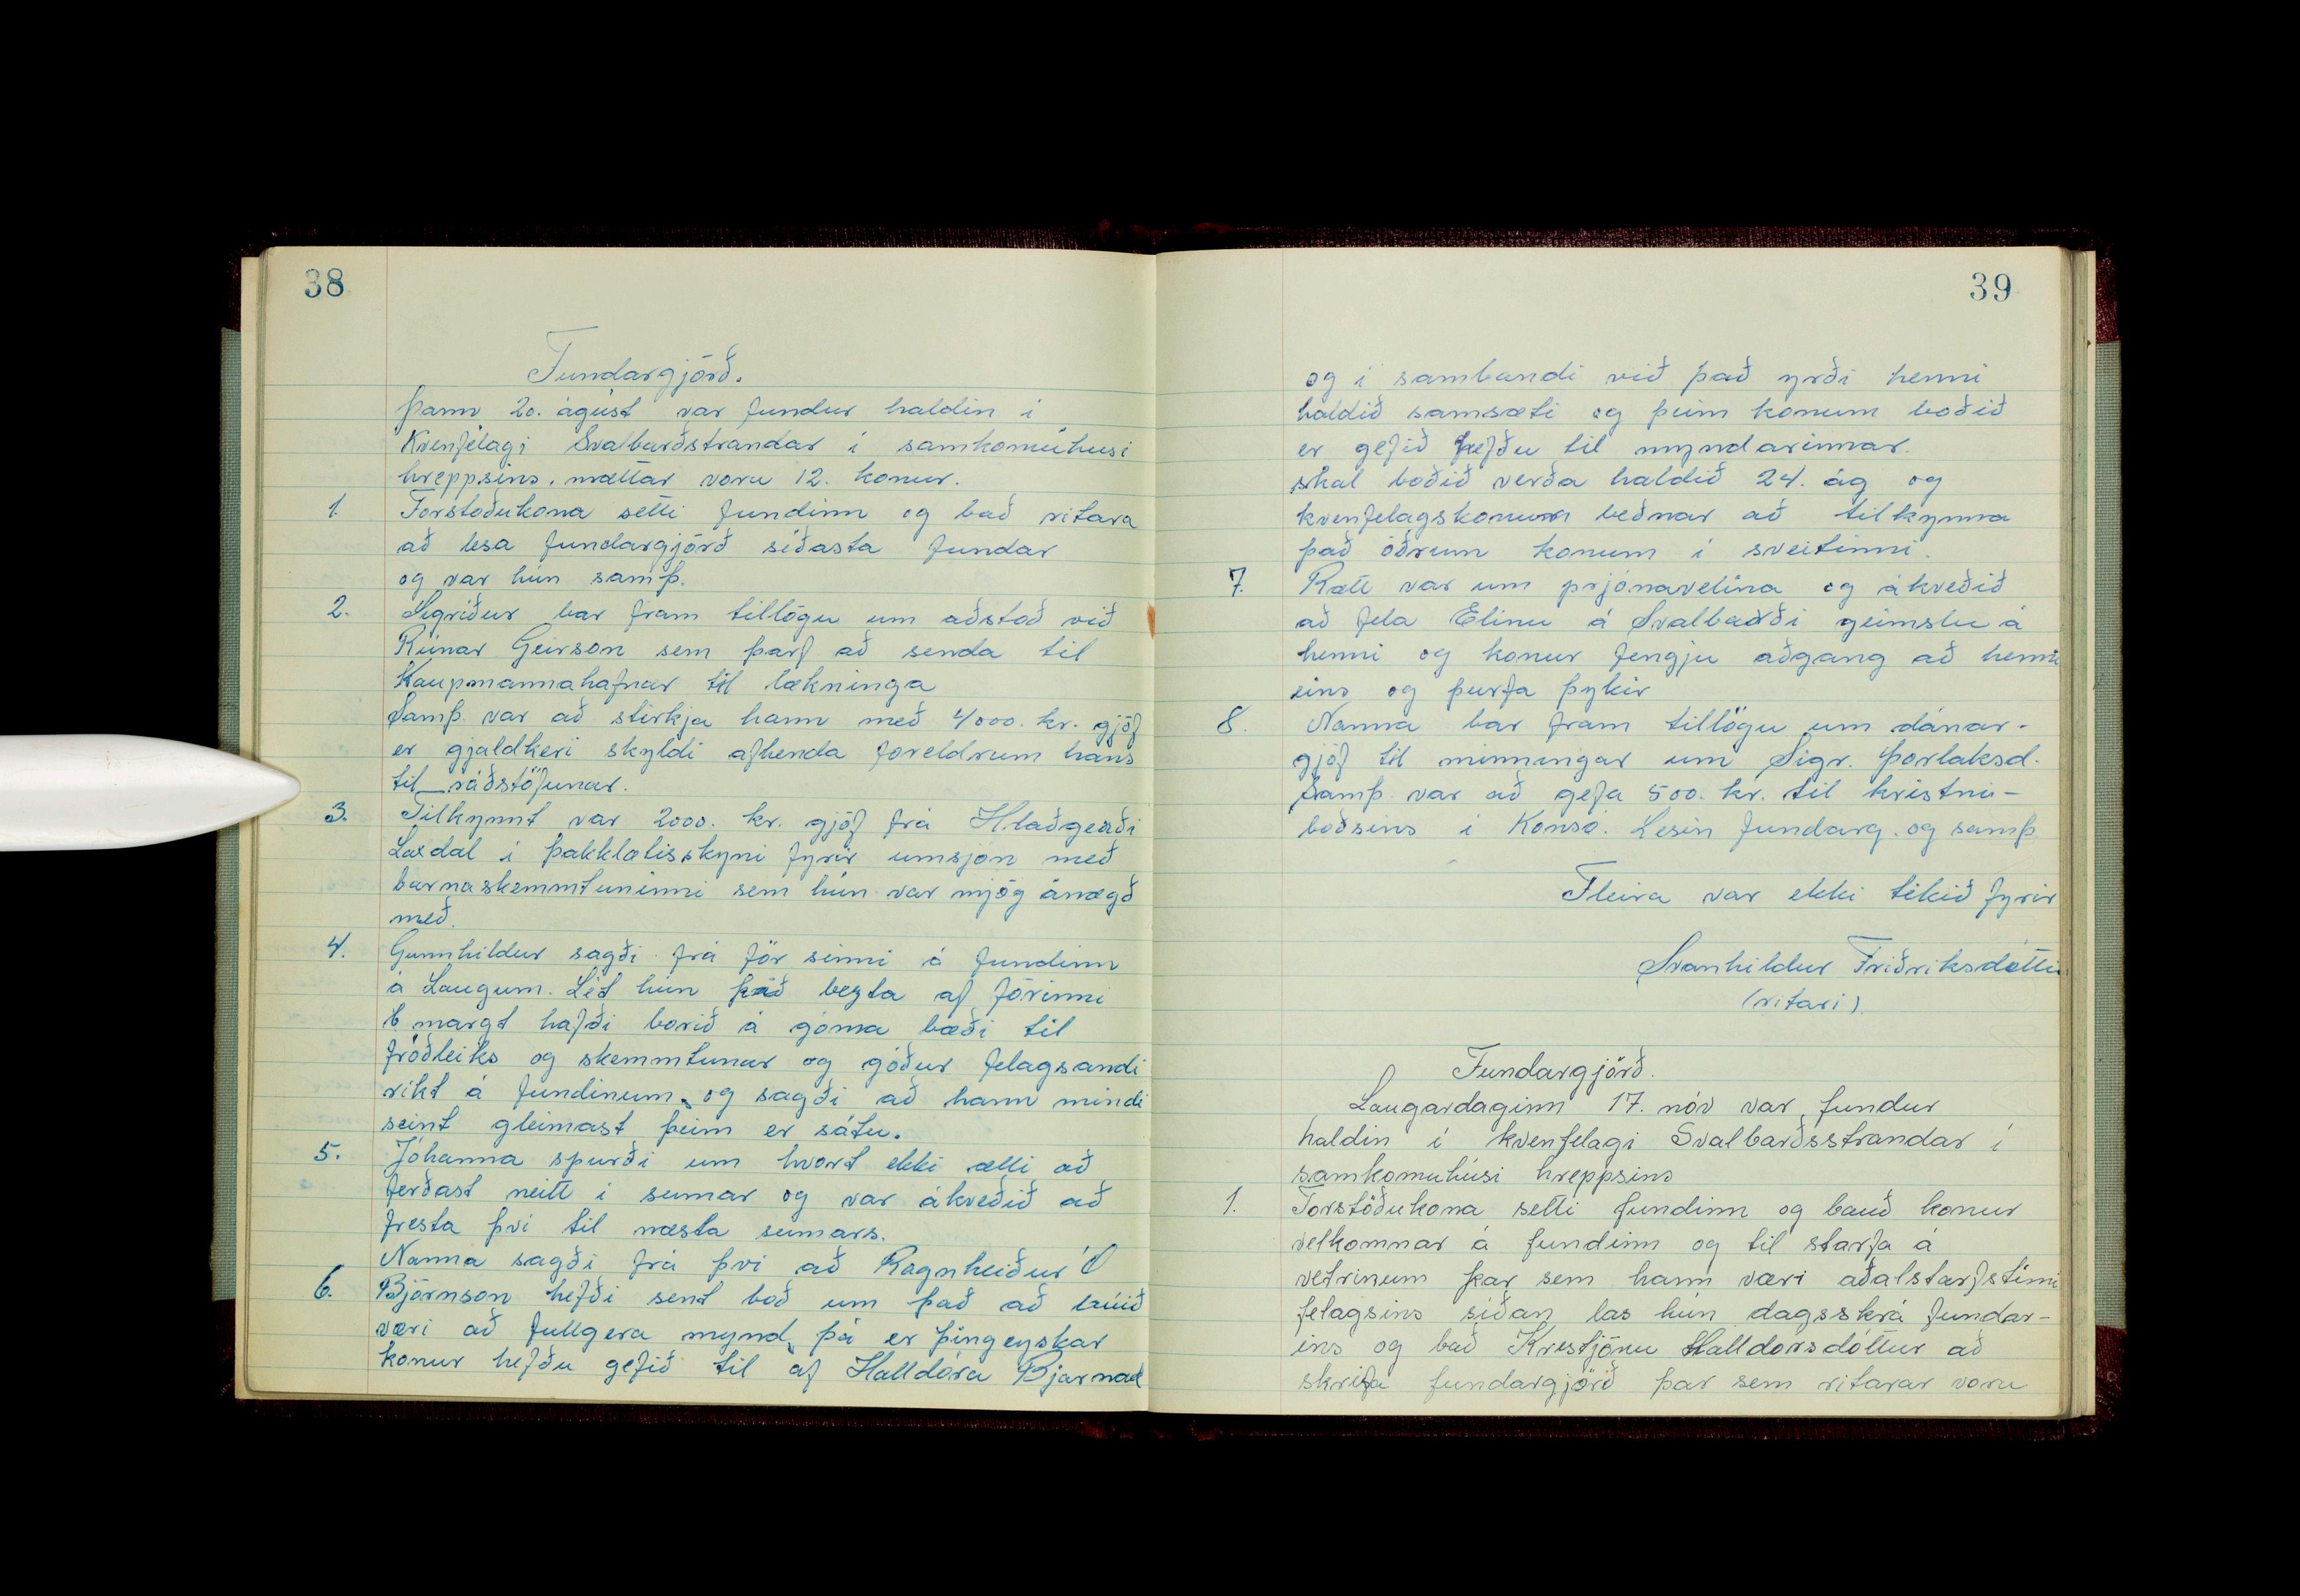 38
Fundargjörð.
Þann 20. ágúst var fundur haldin i
Kvenfélagi Svalbarðstrandar i samkomúhusi
hreppsins. mættar voru 12. konur.
1. Forstoðukona setti fundinn og bað ritara
að lesa fundargjörð síðasta fundar
og var hún samþ.
2. Sigriður bar fram tillögu um aðstoð við
Rúnar Geirson sem þarf að senda til
Kaupmannahafnar til lækninga
Samþ. var að stirkja hann með 4000. kr. gjöf
er gjaldkeri skyldi afhenda foreldrum hans
til ráðstöfunar.
3. Tilkynnt var 2000. kr. gjöf frá Hlaðgerði
Laxdal i þakklætisskyni fyrir umsjón með
barnaskemmtuninni sem hún var mjög ánægð
með.
4. Gunnhildur sagði frá för sinni á fundinn
á Laugum. Lét hún það bezta af förinni
margt hafði borið á góma bæði til
fróðleiks og skemmtunar og góður felagsandi
rikt á fundinum, og sagði að hann mindi
seint gleimast þeim er sátu.
5. Jóhanna spurði um hvort ekki ætti að
ferðast neitt i sumar og var ákveðið að
fresta því til næsta sumars.
Nanna sagði frá þvi að Ragnheiður Ó
6. Björnson hefði sent boð um það að búið
væri að fullgera mynd, þá er þingeyskar
konur hefðu gefið til af Halldóra Bjarnad
39
og i sambandi við það yrði henni
haldið samsæti og þeim konum boðið
er gefið hefðu til myndarinnar.
skal boðið verða haldið 24. ág og
kvenfelagskonum beðnar að tilkynna
það öðrum konum i sveitinni.
7. Rætt var um prjónavelina og ákveðið
að fela Elinu á Svalbarði geimslu á
henni og konur fengju aðgang að henni
eins og þurfa þykir
8. Nanna bar fram tillögu um dánar-
gjöf til minningar um Sigr. Þorlaksd.
Samþ var að gefa 500. kr. til kristni-
boðsins i Konsó. Lesin fundarg. og samþ
Fleira var ekki tekið fyrir
Svanhildur Friðriksdóttir
(ritari)
Fundargjörð.
Laugardaginn 17. nóv var fundur
haldin í kvenfelagi Svalbarðsstrandar í
samkomuhúsi hreppsins
1. Forstöðukona setti fundinn og bauð konur
velkomnar á fundinn og til starfa á
vetrinum þar sem hann væri aðalstarfstími
felagsins síðan las hún dagsskrá fundar-
ins og bað Kristjönu Halldorsdóttur að
skrifa fundargjörð þar sem ritarar voru